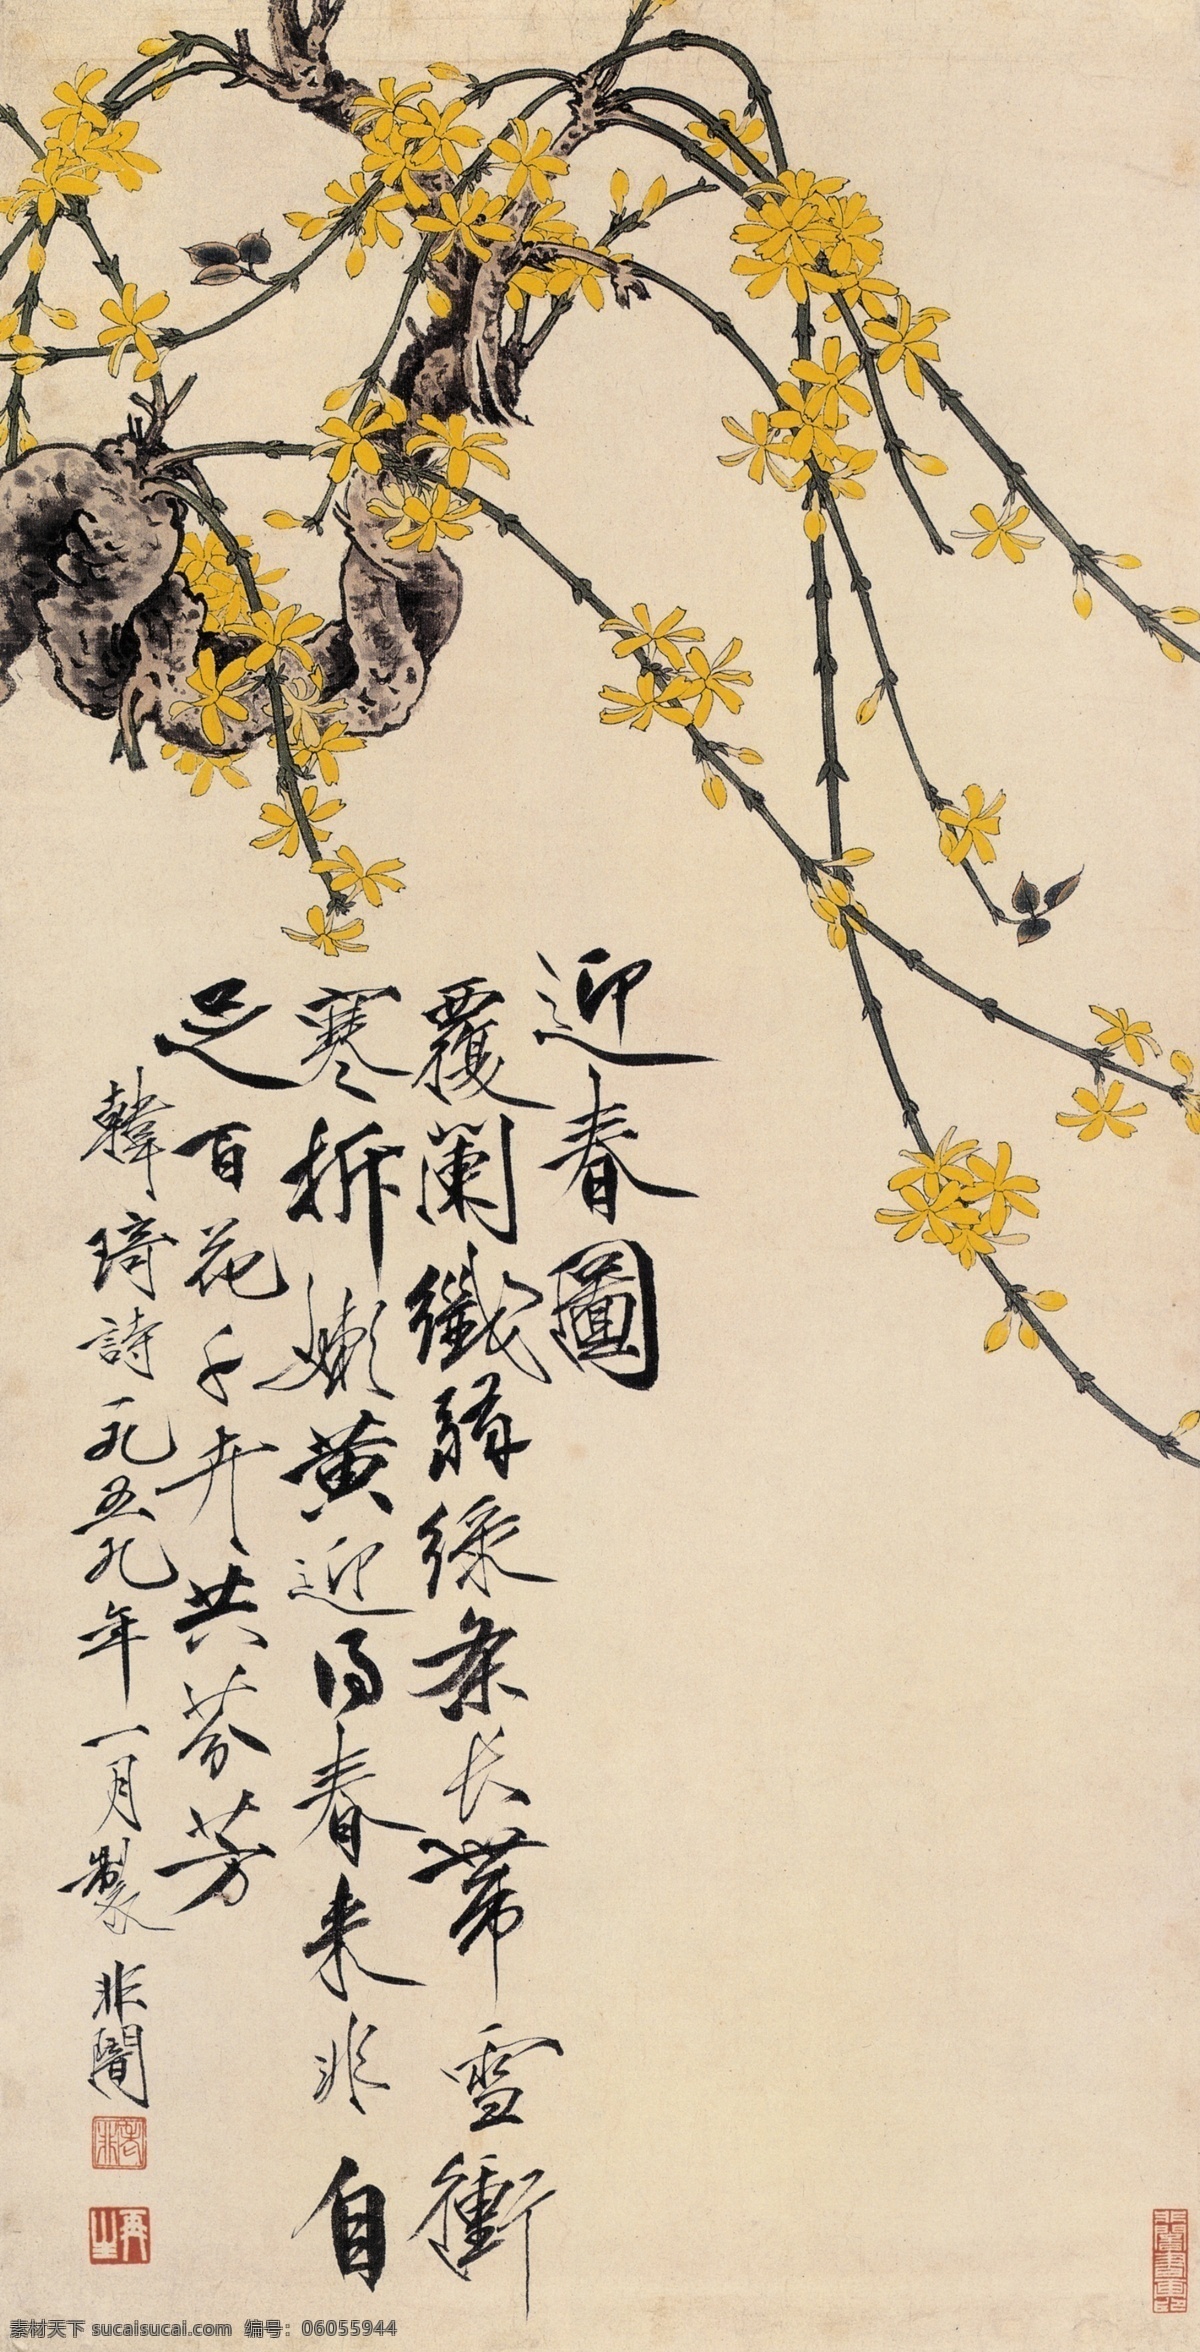 迎春圖
覆闌纖弱綠条长帶雪衝
寒拆嫩黄迎得春来非自
足百花千卉共芬芳
韓琦詩一九五九年一月製非闇
再生
素材天下 sucaisucai.com 编号：06055944